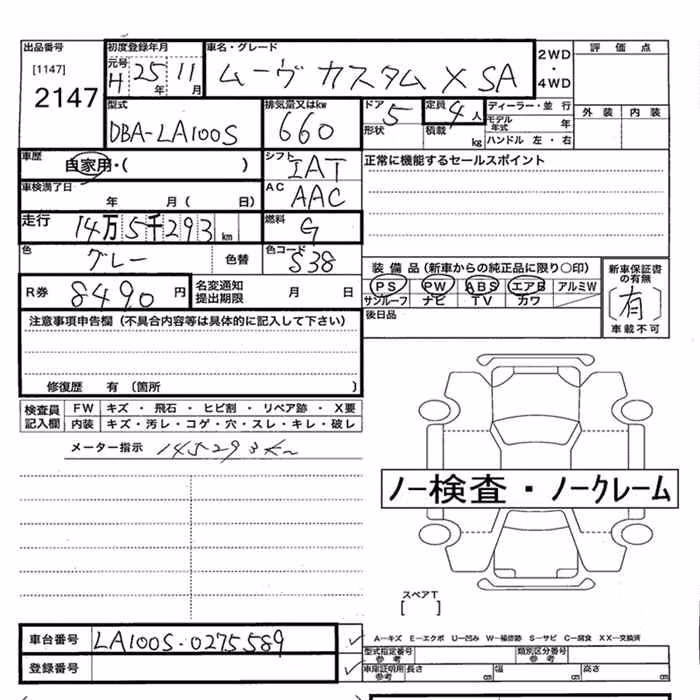 出品番号
[1147]
2147
初度登録年月
元号 H 25 年 11 月
車名・グレード
ムーヴ カスタム X SA
2WD
・
4WD
評価点
外装 内装
型式
DBA-LA100S
排気量又はkw
660
ドア 5
形状
定員 4 人
積載 kg
ディーラー・並行
モデル年式 年
ハンドル 左・右
車歴
自家用・( )
シフト IAT
正常に機能するセールスポイント
車検満了日
年 月( 日)
AC AAC
走行 14万5千293 km
燃料 G
色 グレー 色替
色コード S38
装備品(新車からの純正品に限り○印)
PS PW ABS エアB アルミW
サンルーフ ナビ TV カワ
新車保証書の有無
[有]
車載不可
R券 8490 円
名変通知
提出期限 月 日
後日品
注意事項申告欄(不具合内容等は具体的に記入して下さい)
修復歴 有(箇所 )
検査員記入欄
FW キズ・飛石・ヒビ割・リペア跡・X要
内装 キズ・汚レ・コゲ・穴・スレ・キレ・破レ
メーター指示 145293km
ノー検査・ノークレーム
スペアT
[ ]
車台番号 LA100S-0275589
登録番号
A-キズ E-エクボ U-凹み W-補修跡 S-サビ C-腐食 XX-交換済
型式指定番号 参考
類別区分番号 参考
車庫証明用 参考
長さ cm 幅 cm 高さ cm